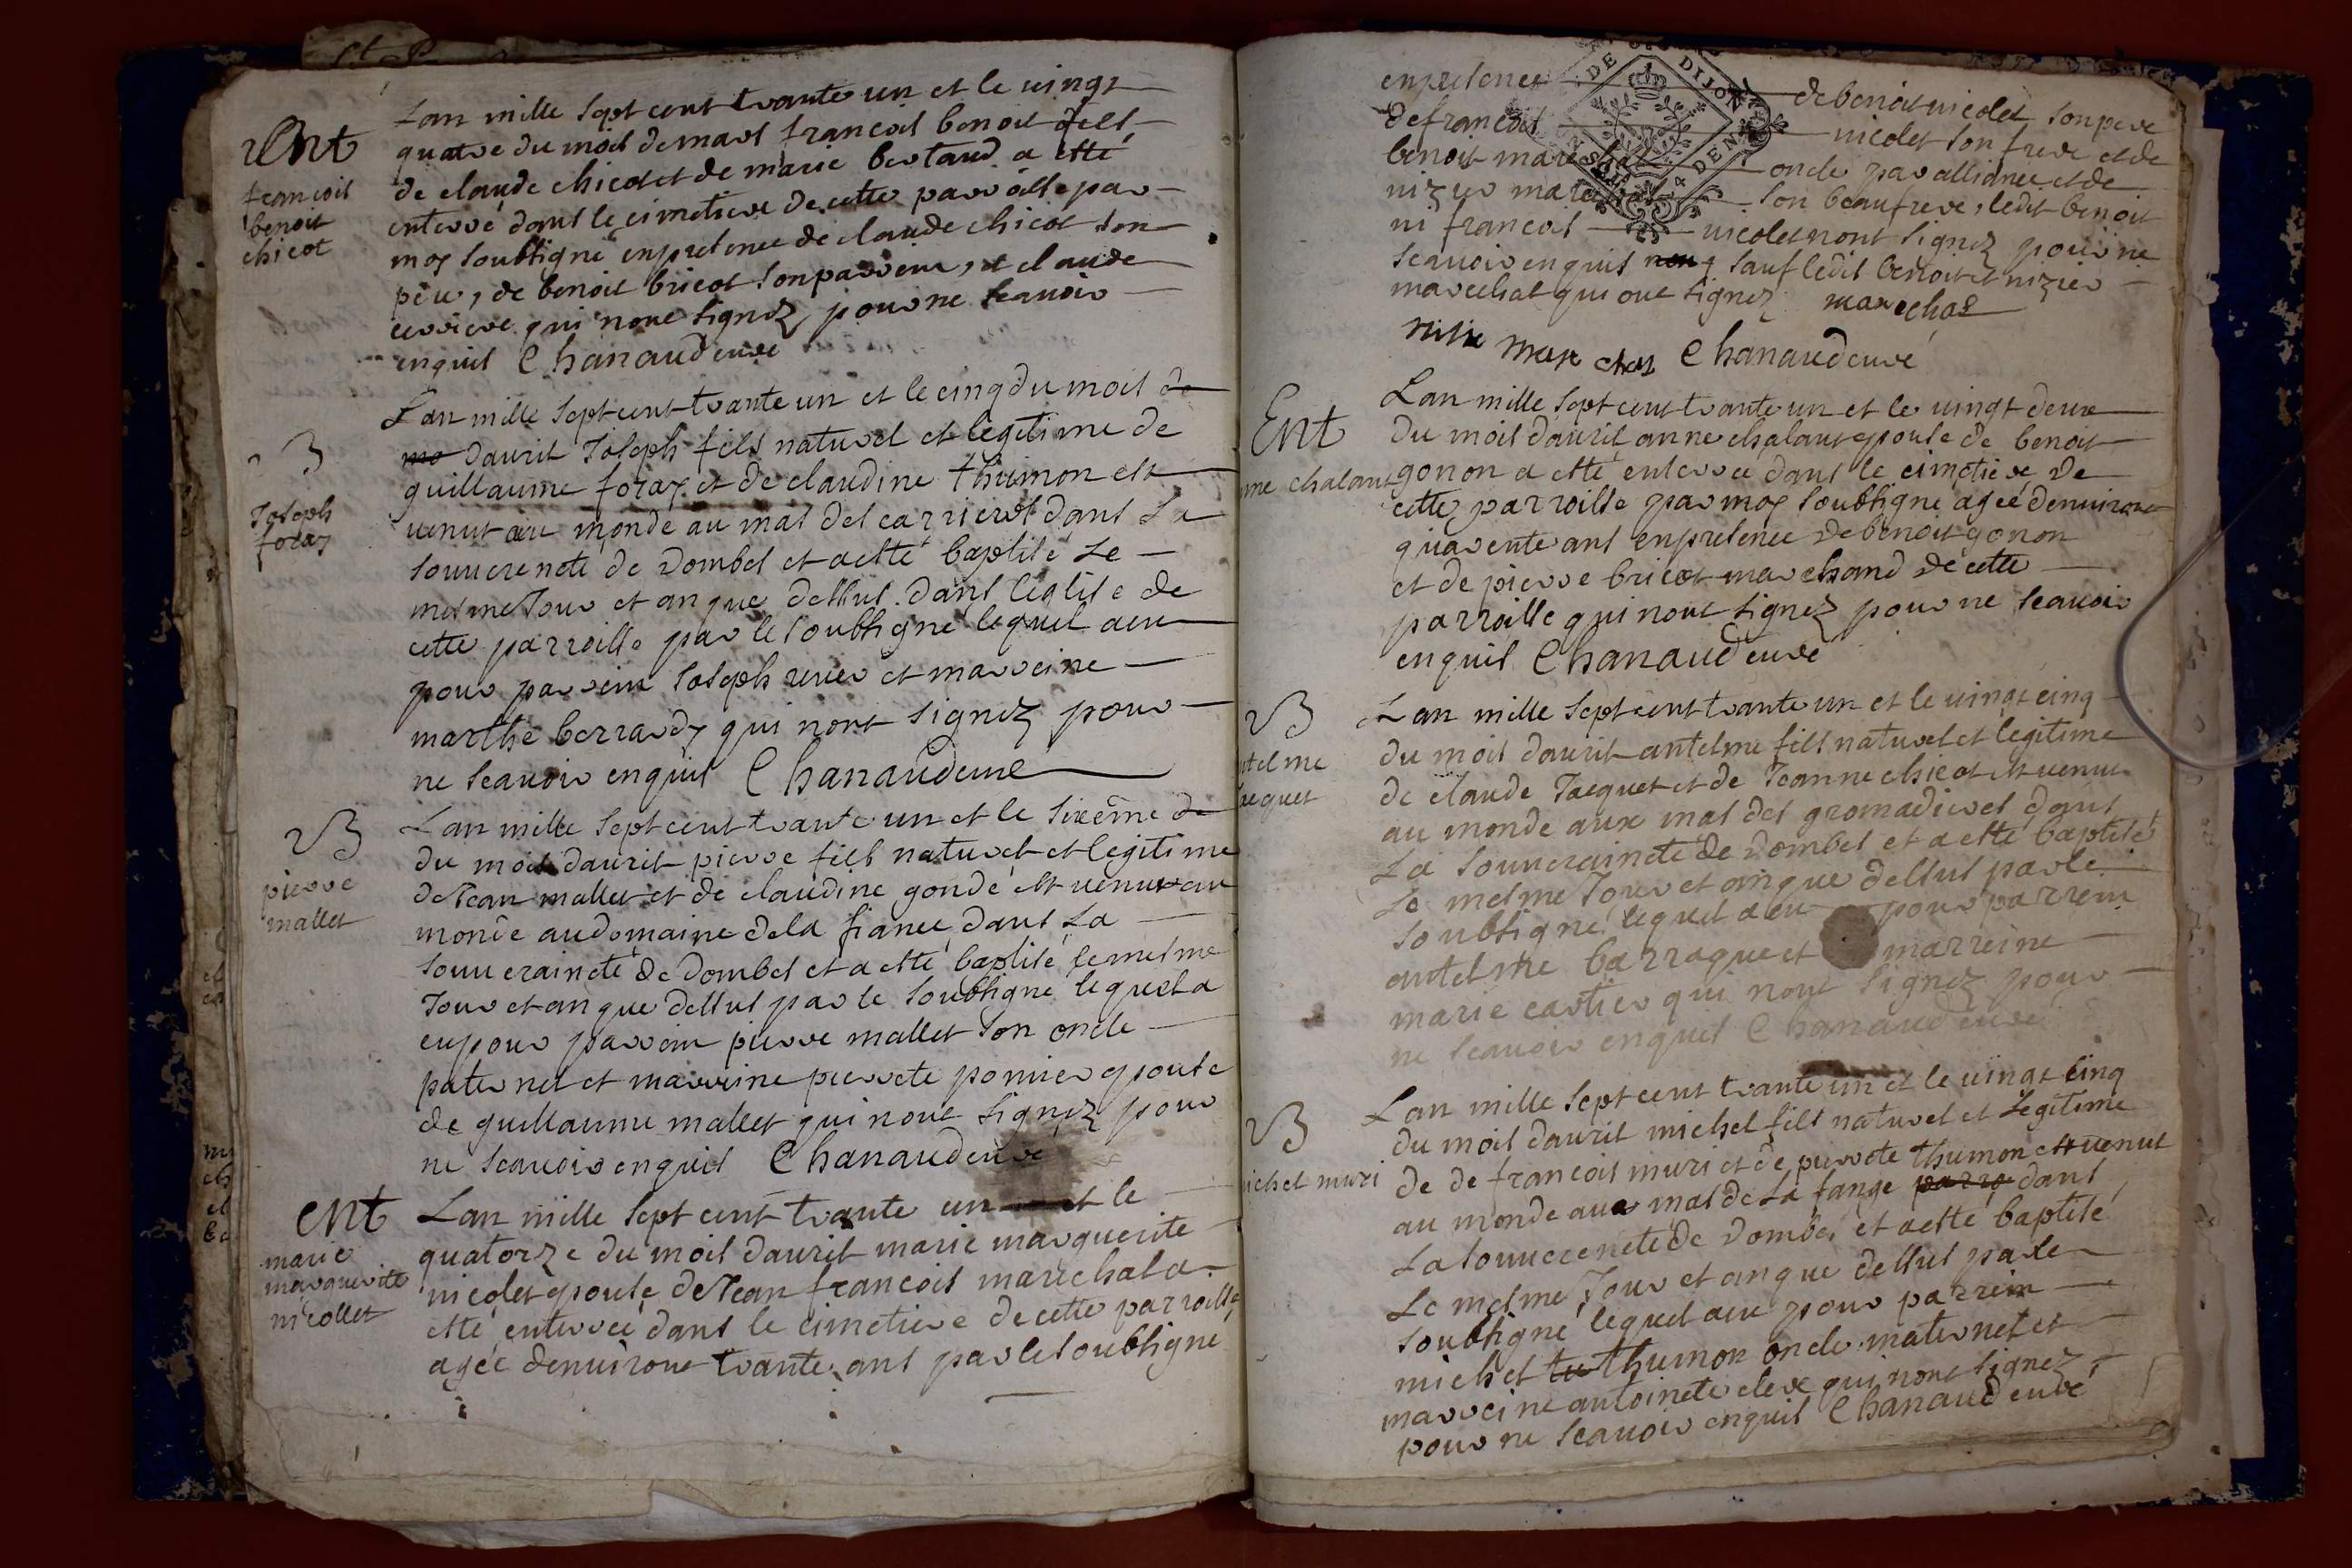 Ent
francois
benoit
chicot
Lan mille sept cent trante un et le vingt
quatre du mois de mars francois benoit fils
de claude chicot et de marie bertaud a esté
enterré dans le cimetiere de cette parroisse par
moy soubsigné enpresence de claude chicot son
pere, de benoit bricot son parrein, et claude
qui nont signez pour ne scavoir
enquis Chanaudeuvre
B
Joseph
foray
Lan mille sept cent trante un et le cinq du mois de
mo davril Joseph fils naturel et legitime de
guillaume foray et de claudine thumon est
venut au monde au mas des carrieres dans La
souverenete de Dombes et a esté baptisé Le
mesme Jour et an que dessus dans leglise de
cette parroisse par le soubsigne lequel a eu
pour parrein Joseph et marreine
marthe berrardy qui nont signez pour
ne scavoir enquis Chanaudeuvre
B
pierre
mallet
Lan mille sept cent trante un et le sixême de
du mois davril pierre fils naturel et legitime
de Jean mallet et de claudine gonde est venut au
monde au domaine de la fiance dans La
souveraineté de Dombes et a esté baptisé le mesme
Jour et an que dessus par le soubsigné lequel a
eu pour parrein pierre mallet son oncle
paternel et marreine pierrete pomier epouse
de guillaume mallet qui nont signez pour
ne scavoir enquis Chanaudeuvre
ent
marie
marguerite
nicollet
Lan mille sept cent trante un et le
quatorze du mois davril marie marguerite
nicolet epouse de Jean francois marechal a
esté enterrée dans le cimetiere de cette parroisse
agée denviront trante ans par le soubsigné
enpresence de benoit nicolet son pere
de francois nicolet son frere et de
benoit marechal oncle par alliance et de
nizier marechal son beaufrere, ledit benoit
ni francois nicolet nont signez pour ne
scavoir enquis sauf ledit benoit et nizier
marechal qui ont signez marechal
Chanaudeuvre
DE DIJON
DEN
Ent
ne chalant
Lan mille sept cent trante un et le vingt deux
du mois davril anne chalant epouse de benoit
gonon a esté enterree dans le cimetiere de
cette parroisse par moy soubsigné agée denviront
quarente ans enpresence de benoit gonon
et de pierre bricot marchand de cette
parroisse qui nont signez pour ne scavoir
enquis Chanaudeuvre
B
ntelme
aquet
Lan mille sept cent trante un et le vingt cinq
du mois davril antelme fils naturel et legitime
de claude Jacquet et de Jeanne chicot est venut
au monde aux mas des gromadieres dans
La souveraineté de Dombes et a esté baptisé
Le mesme Jour et an que dessus par le
soubsigné lequel a eu pour parrein
antelme barraquet marreine
marie cartier qui nont signez pour
ne scavoir enquis Chanaudeuvre
B
ichel muri
Lan mille sept cent trante un et le vingt cinq
du mois davril michel fils naturel et Legitime
de de francois muri et de pierrete thumon est venut
au monde aux mas de La fange parro dans
La souverenete de Dombes et a esté baptisé
Le mesme Jour et an que dessus par le
soubsigné lequel a eu pour parrein
michel tu thumon oncle maternel et
marreine antoinete clere qui nont signez
pour ne scavoir enquis Chanaudeuvre